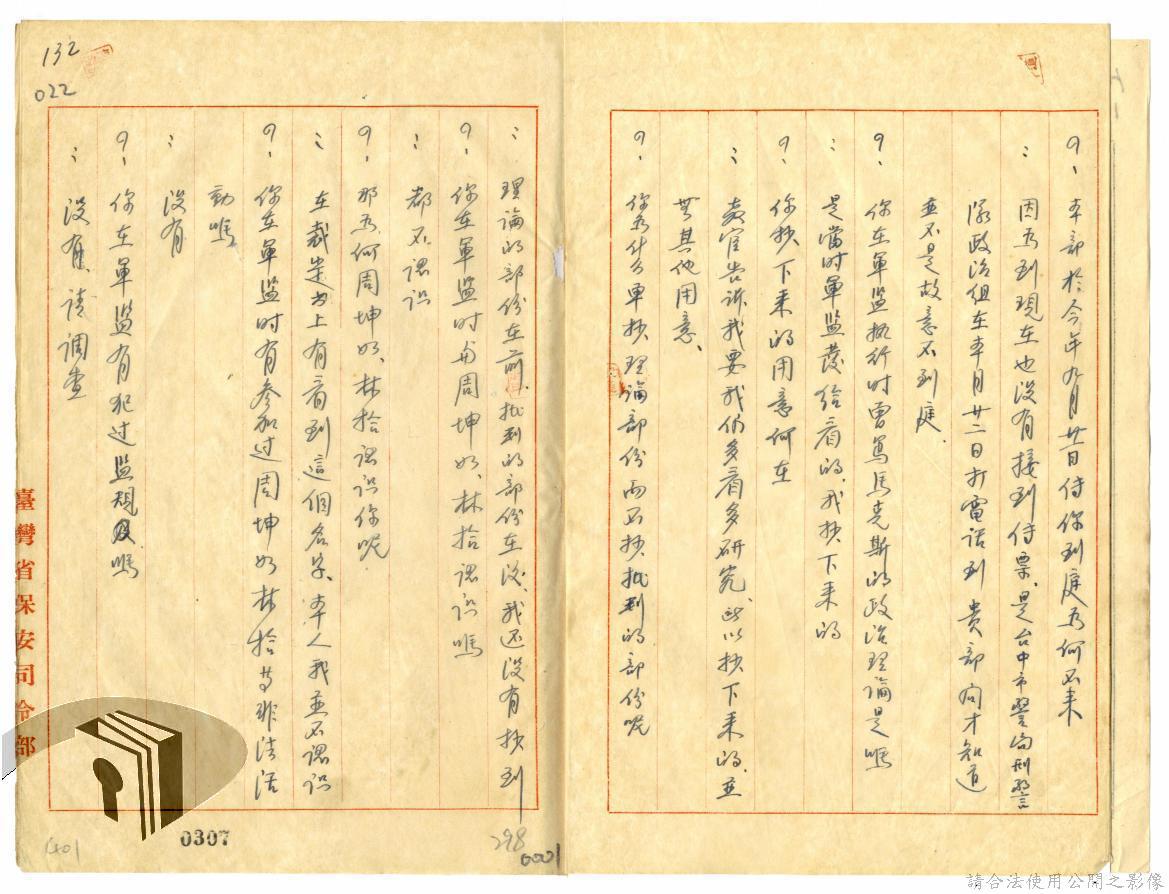 問、本部於今年九月廿日傳你到庭為何不來
: 因為到現在也沒有接到傳票、是台中市警局刑警
隊政治組在本月廿二日打電話到貴部问才知道
並不是故意不到庭.
問、你在軍监执行时曾写馬克斯的政治理論是嗎
: 是當时軍监發给看的.我抄下来的
問、你抄下来的用意何在
: 教官告訴我要我们多看多研究、所以抄下来的.並
無其他用意、
問、你為什么单抄理論部份而不抄批判的部份呢
: 理論的部份在前.批判的部份在後、我还没有抄到
問、你在軍监时与周坤如、林拾認識嗎
: 都不認識
問、那為何周坤如、林拾認識你呢
: 在裁定书上有看到這個名字、本人我並不認識
問、你在軍监时有参加过周坤如林拾等非法活
動嗎
: 没有
問、你在軍监有犯过监規嗎
: 没有、請調查
臺灣省保安司令部
132
022
0307
298
0001
請合法使用公開之影像